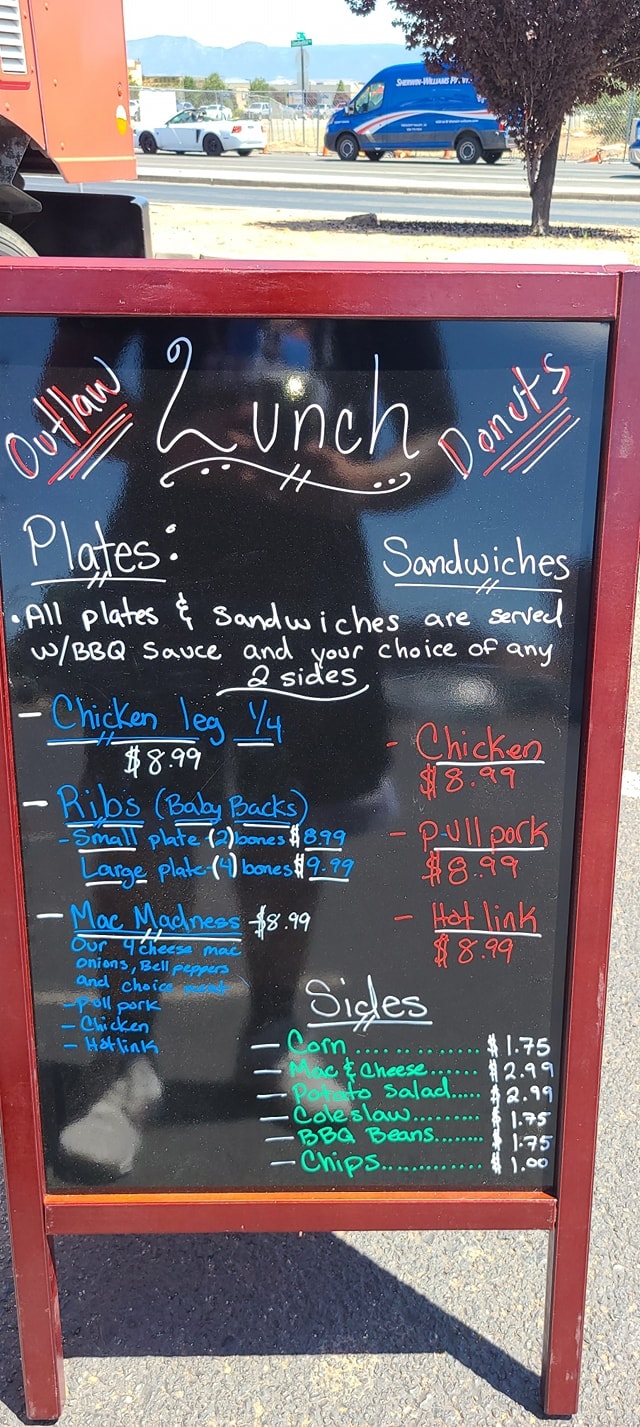 SHERWIN-WILLIAMS
Outlaw Lunch Donuts
Plates:
Sandwiches
• All plates & Sandwiches are served
w/BBQ Sauce and your choice of any
2 sides
- Chicken leg 1/4
$8.99
- Ribs (Baby Backs)
- Small plate (2) bones $8.99
Large plate (4) bones $9.99
- Mac Madness $8.99
Our 4 cheese mac
onions, Bell peppers
and choice meat
- Pull pork
- Chicken
- Hot link
- Chicken
$8.99
- Pull pork
$8.99
- Hot link
$8.99
Sides
- Corn.............. $1.75
- Mac & Cheese....... $2.99
- Potato Salad..... $2.99
- Coleslaw.......... $1.75
- BBQ Beans........ $1.75
- Chips............. $1.00